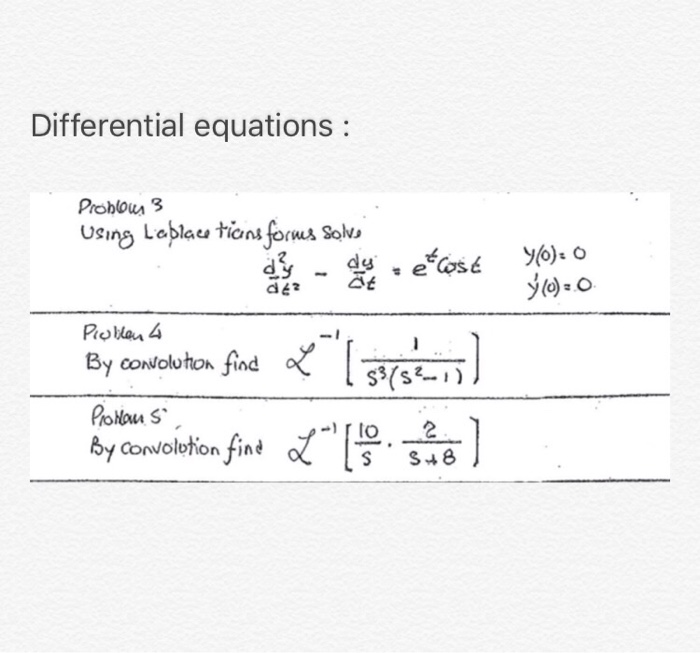 Differential equations :
Problem 3
Using Laplace transforms solve
d²y/dt² - dy/dt = eᵗ cos t    y(0) = 0
ẏ(0) = 0
Problem 4
By convolution find ℒ⁻¹ [ 1 / s³(s² - 1) ]
Problem 5
By convolution find ℒ⁻¹ [ 10/s · 2/(s+8) ]